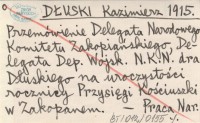 DŁUSKI Kazimierz 1915.
Przemówienie Delegata Narodowego
Komitetu Zakopiańskiego, De-
legata Dep. Wojsk. N.K.N. dra
Dłuskiego na uroczystości
rocznicy Przysięgi Kościuszki
w Zakopanem. — Praca Nar.